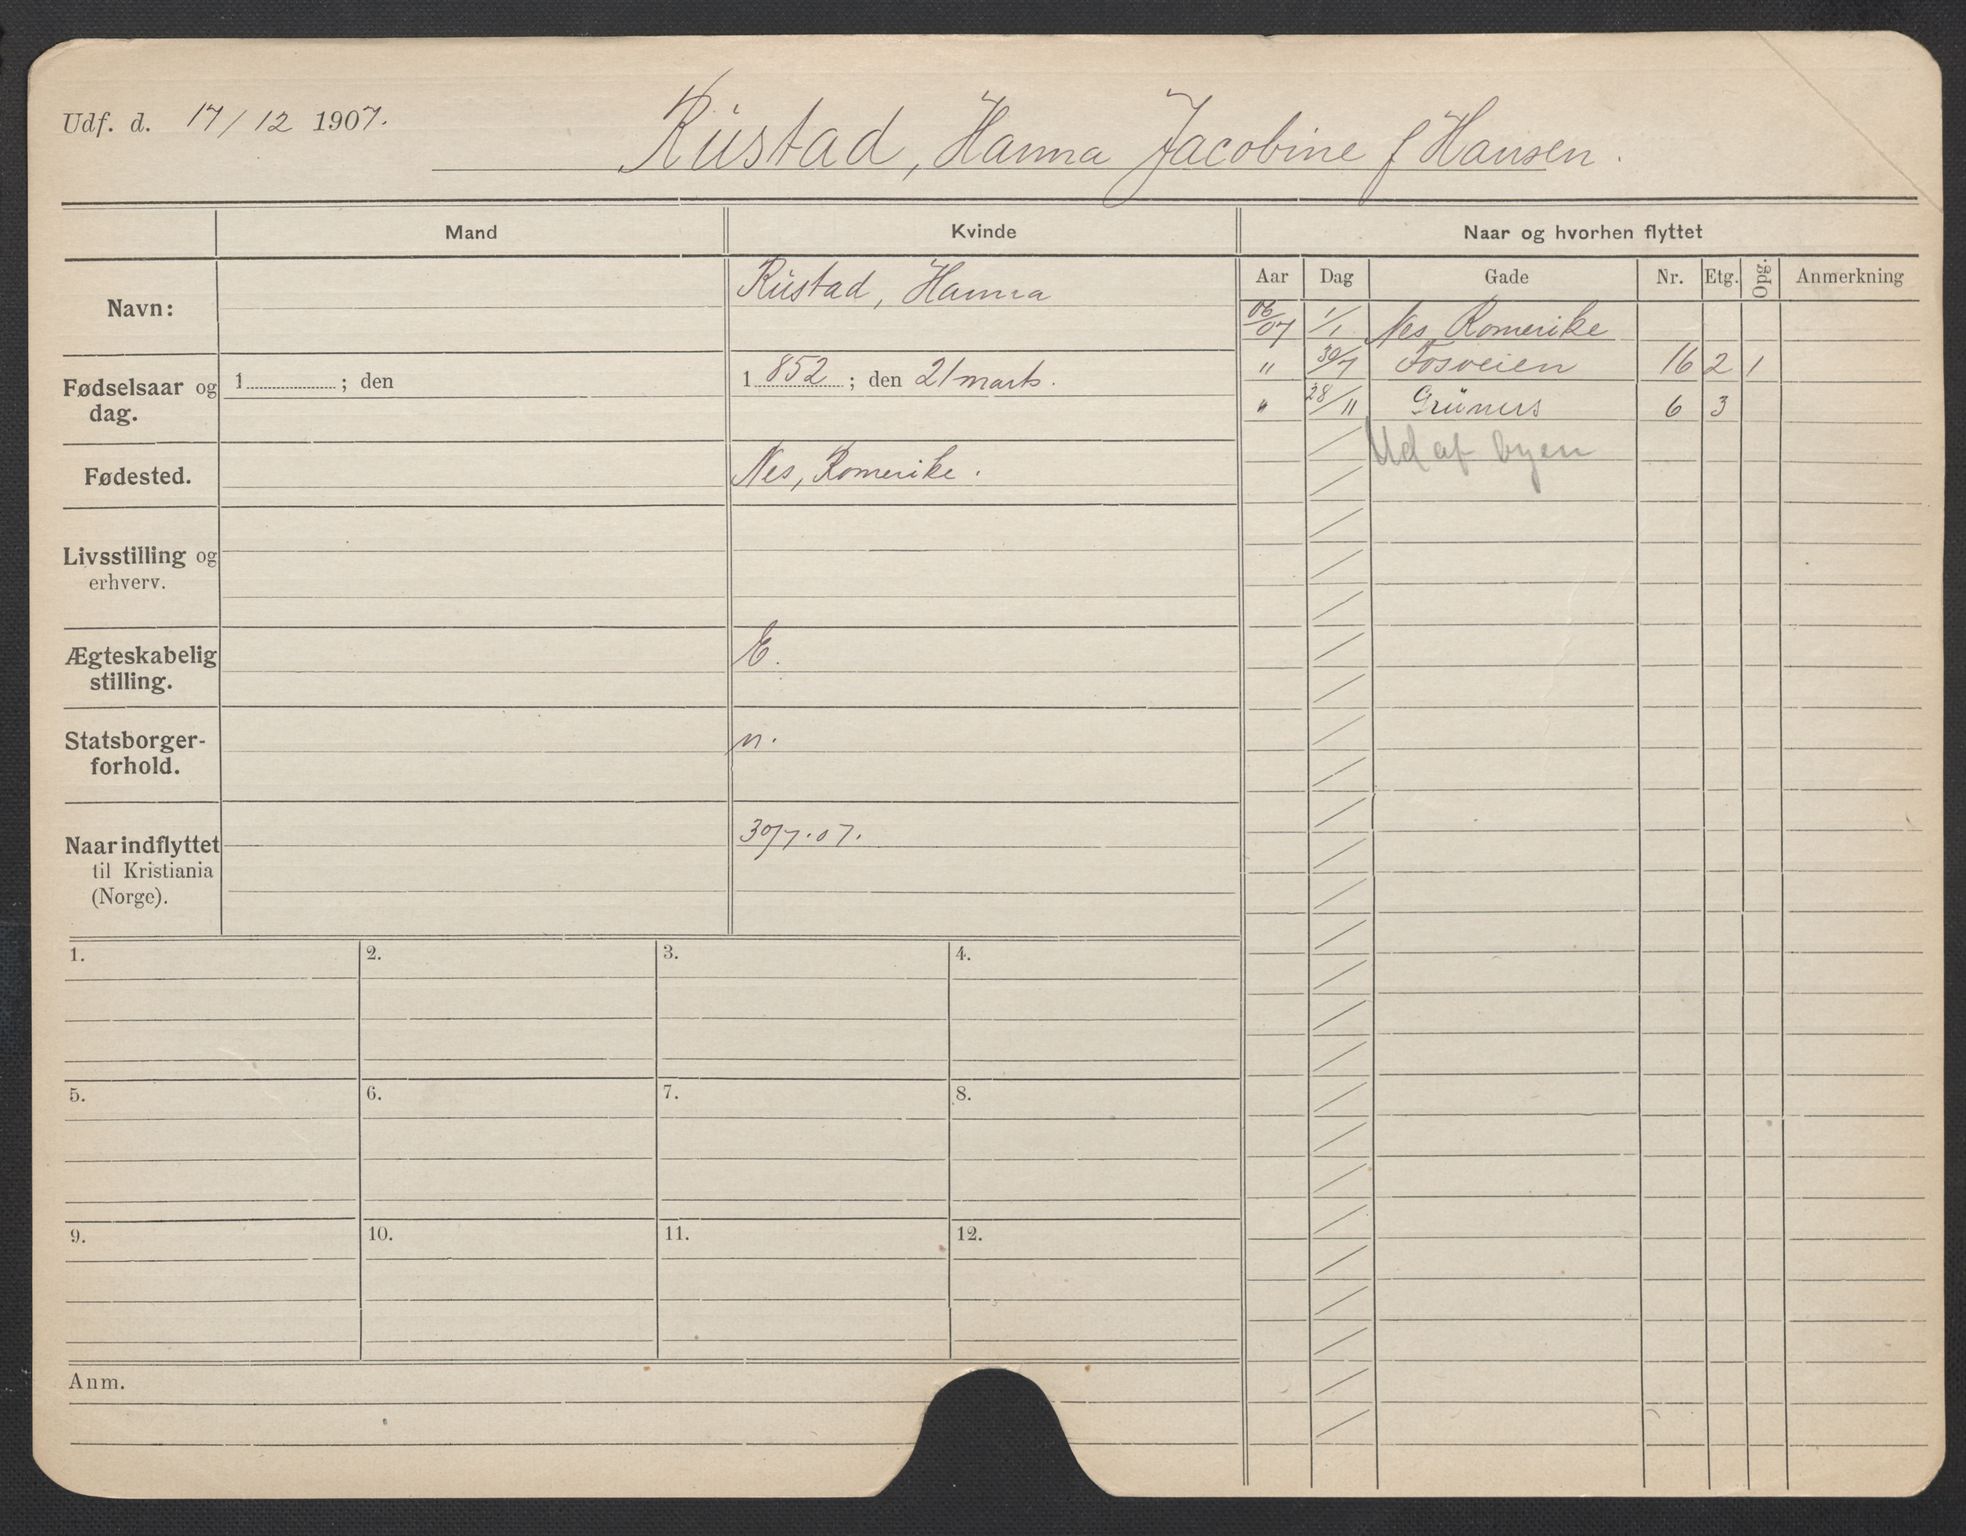 Udf. d. 17/12 1907.
Rüstad, Hanna Jacobine f Hansen.
Mand
Kvinde
Naar og hvorhen flyttet
Aar Dag Gade Nr. Etg. Opg. Anmerkning
Navn:
Rüstad, Hanna
Fødselsaar og
dag.
1 ; den
1852 ; den 21 marts.
Fødested.
Nes, Romerike.
Livsstilling og
erhverv.
Ægteskabelig
stilling.
E.
Statsborger-
forhold.
n.
Naar indflyttet
til Kristiania
(Norge).
30/7.07.
06/07 1/1 Nes Romerike
" 30/7 Fosveien 16 2 1
" 28/11 Grüners 6 3
Ud af byen
1. 2. 3. 4.
5. 6. 7. 8.
9. 10. 11. 12.
Anm.